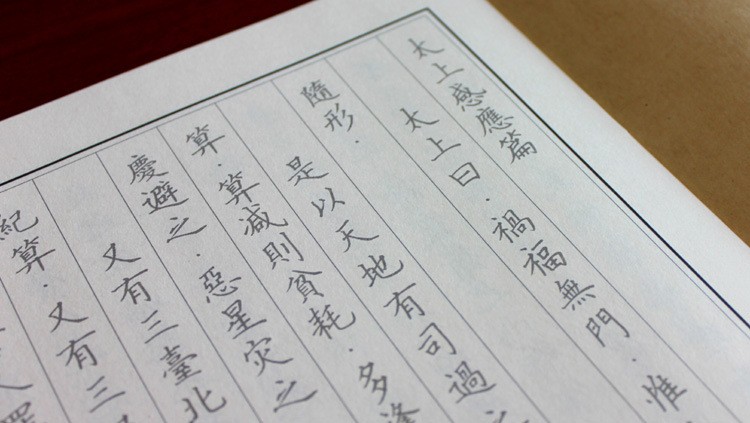 太上感應篇
太上曰．禍福無門．惟
隨形．
是以天地有司過之
算．算減則貧耗．多逢
慶避之．惡星灾之
又有三臺北
紀算．又有三